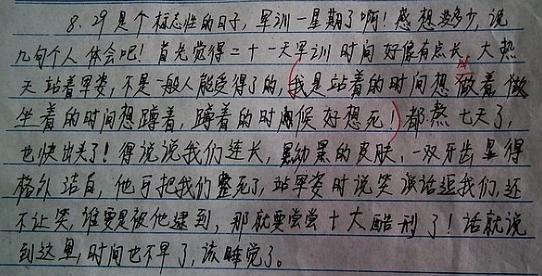 8.29是个标志性的日子，军训一星期了啊！感想蛮多少，说
几句个人体会吧！首先觉得二十一天军训时间好像有点长，大热
天站着军姿，不是一般人能受得了的，我是站着的时间想坐着，做
坐着的时间想蹲着，蹲着的时候好想死！都熬七天了，
也快出头了！得说说我们连长，黑幼黑的皮肤，一双牙齿显得
格外洁白，他可把我们整死了，站军姿时说笑谈话逗我们，还
不让笑，谁要是被他逮到，那就要尝尝十大酷刑了！话就说
到这里，时间也不早了，该睡觉了。